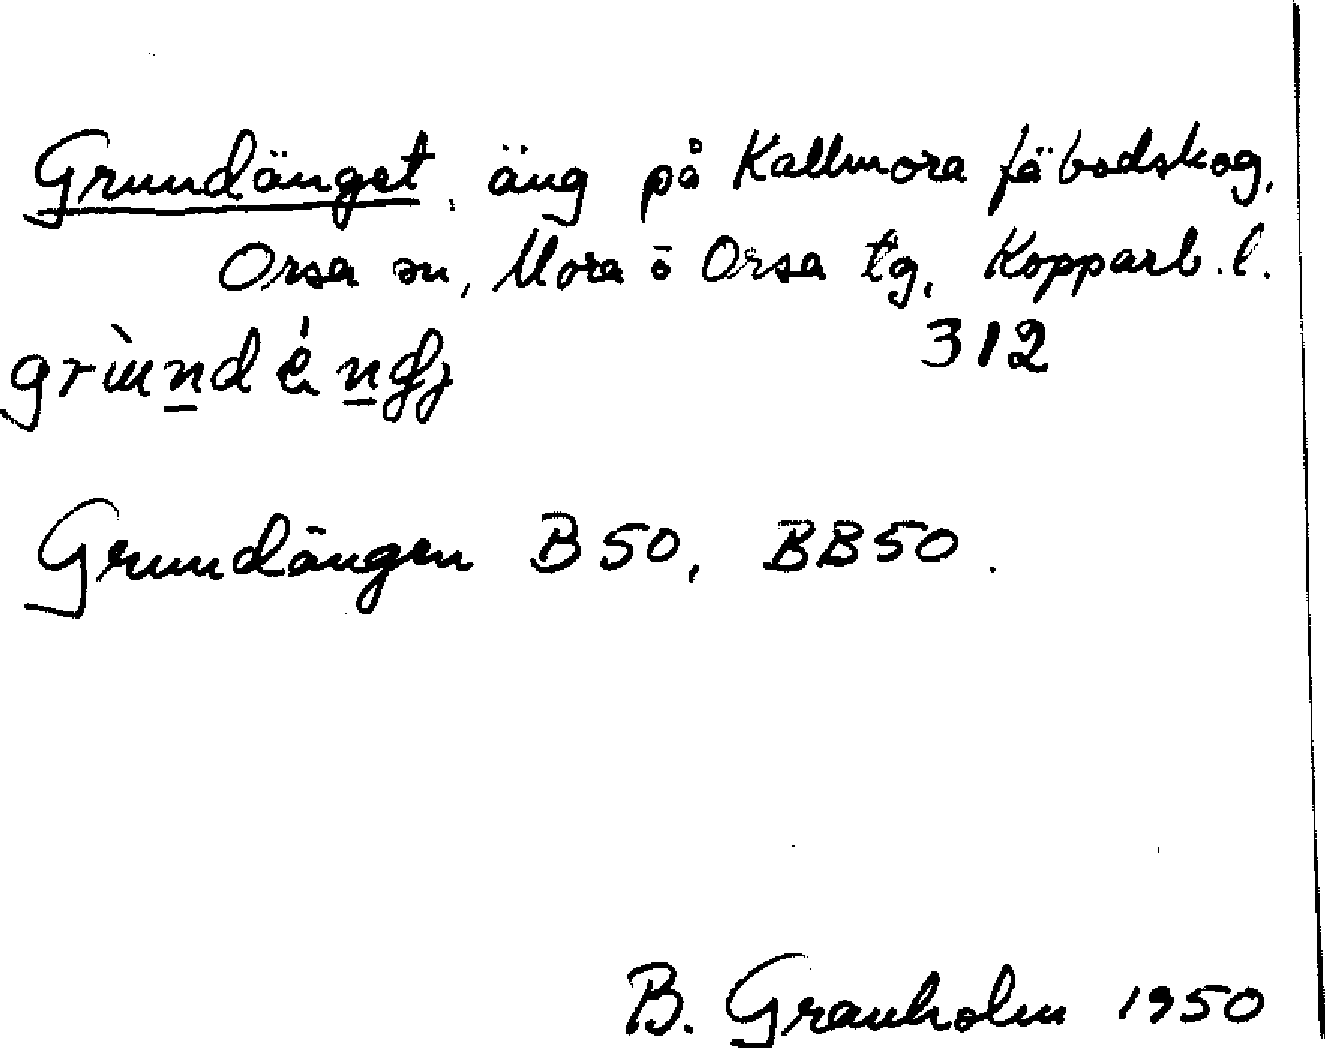 Grundänget, äng på Kallmora fäbodskog,
Orsa sn, Mora ö Orsa tg, Kopparb. l.
312
Grundängen B50, BB50.
B. Granholm 1950